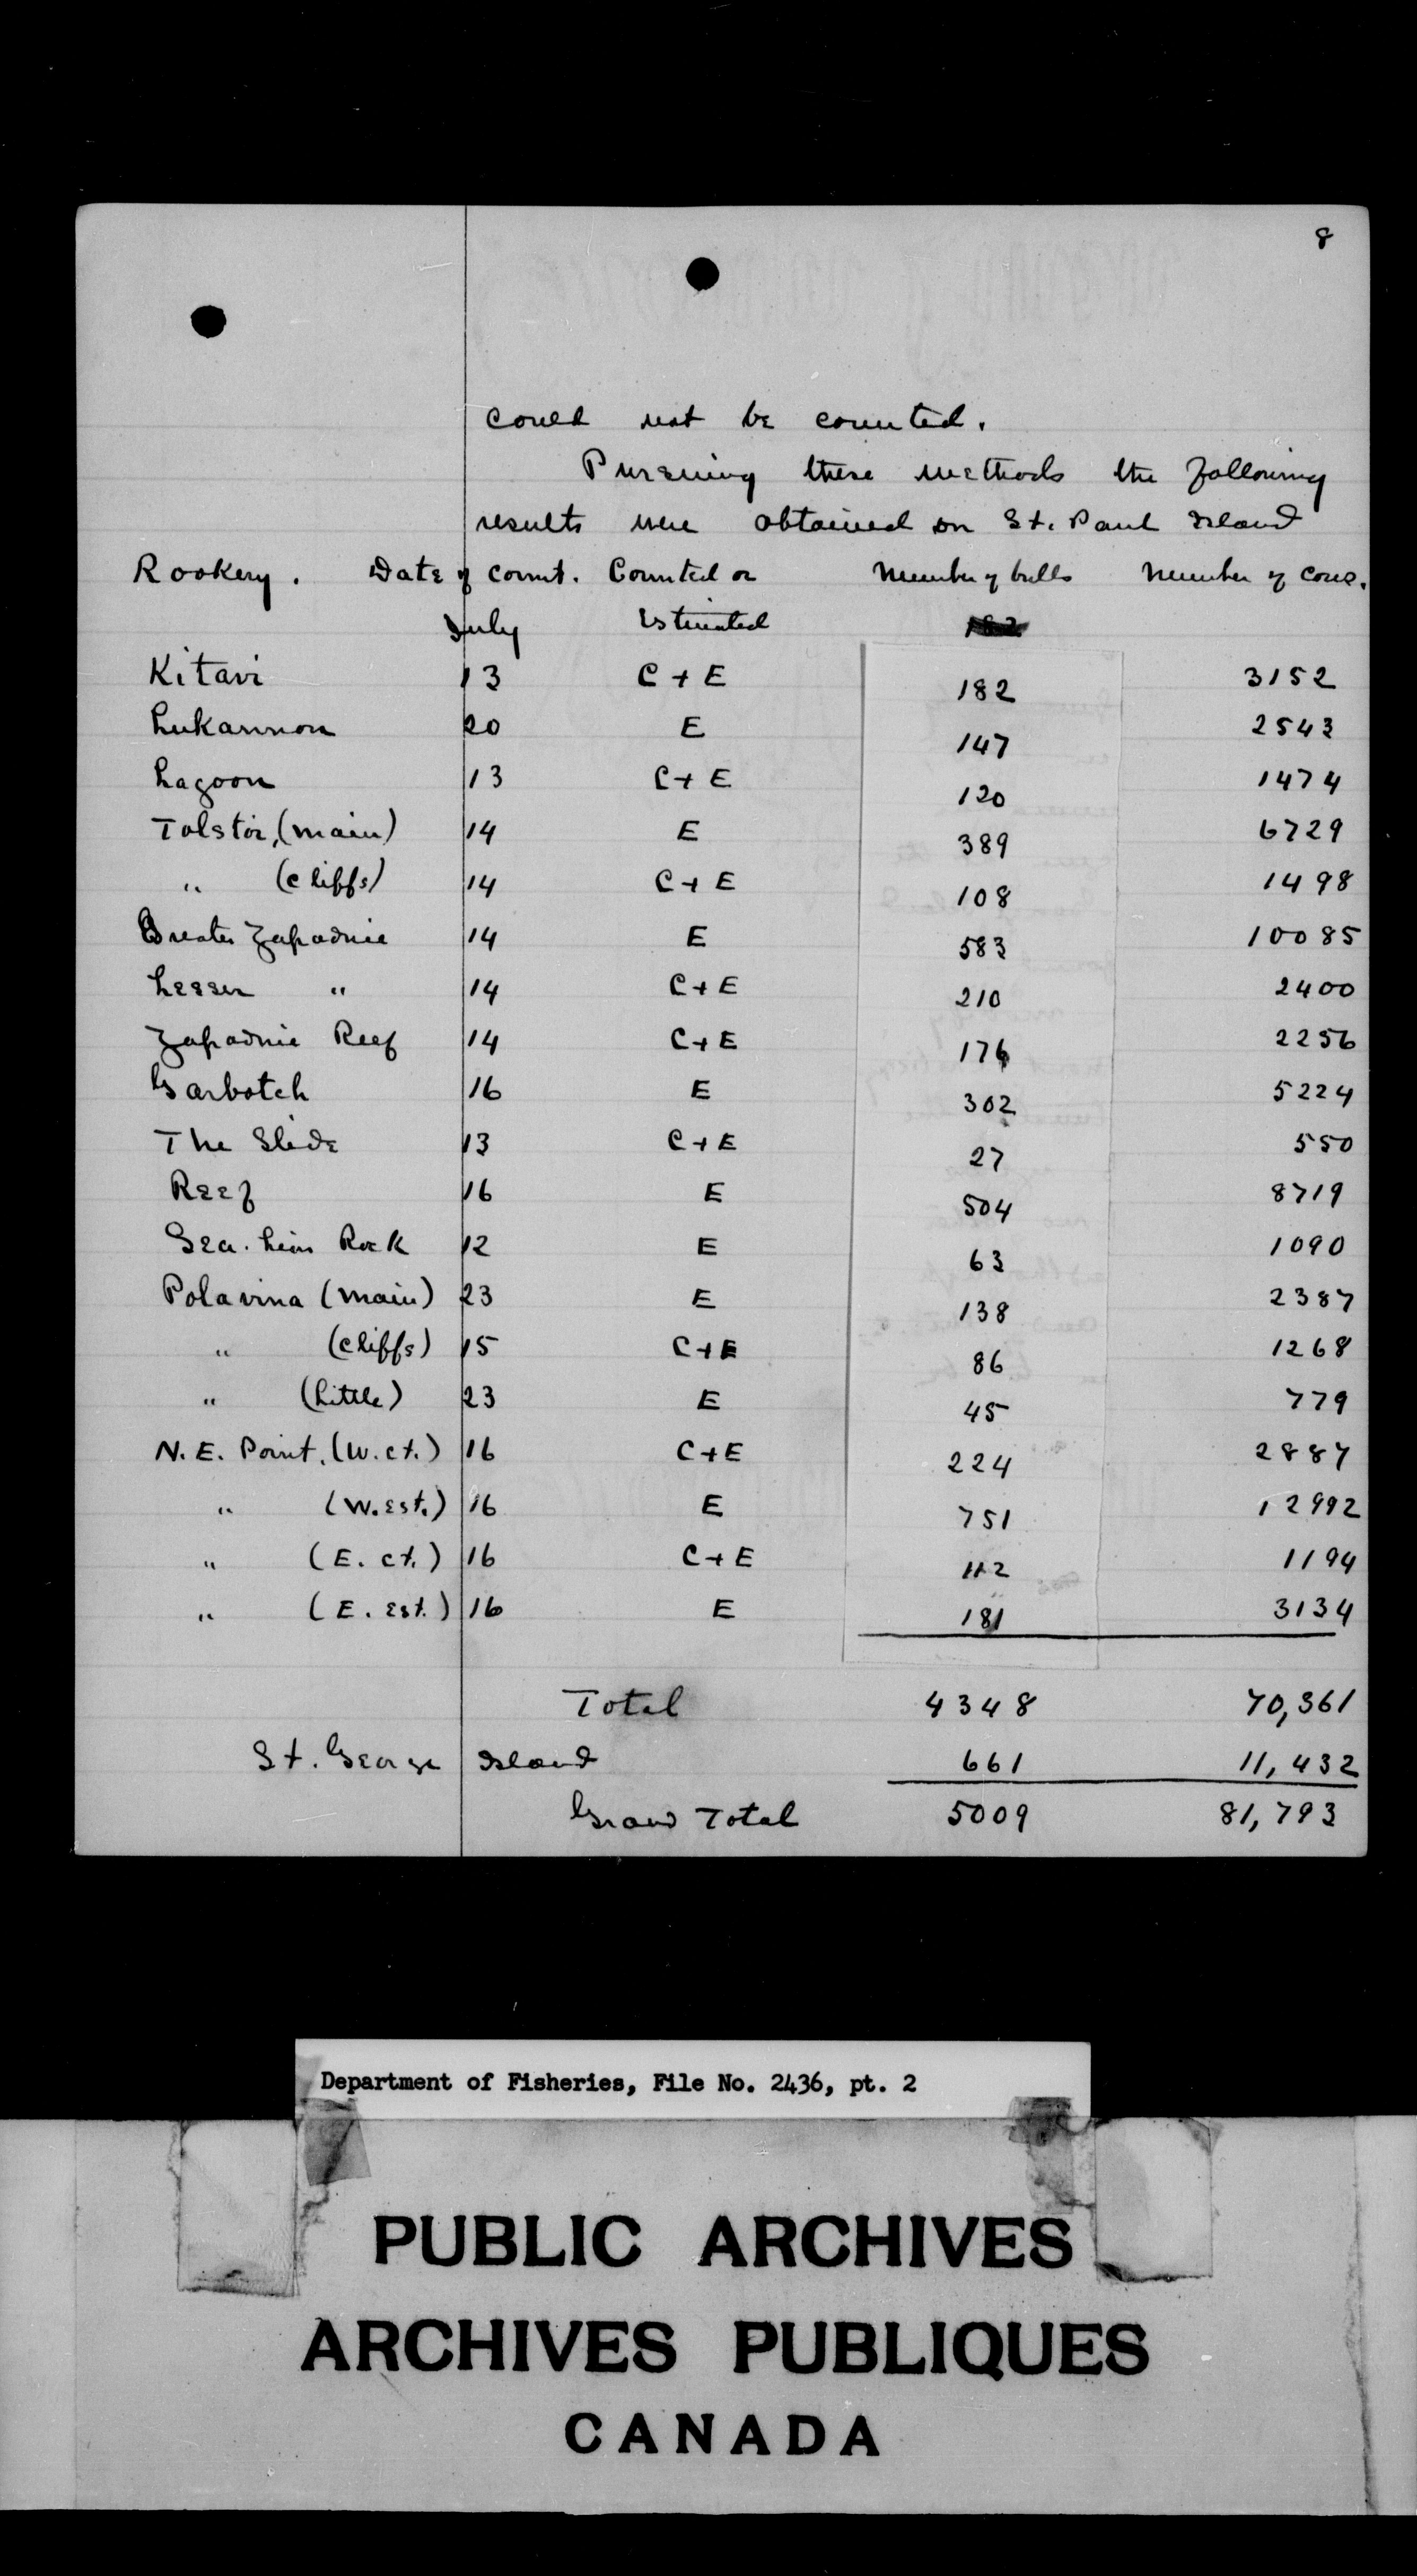 8
could not be counted.
Pursuing these methods the following
results were obtained on St. Paul Island
Rookery. Date of count. Counted or Number of bulls Number of cows.
July Estimated
Kitavi 13 C + E 182 3152
Lukannon 20 E 147 2543
Lagoon 13 C + E 120 1474
Tolstoi, (main) 14 E 389 6729
" (cliffs) 14 C + E 108 1498
Greater Zapadnie 14 E 583 10085
Lesser " 14 C + E 210 2400
Zapadnie Reef 14 C + E 176 2256
Garbotch 16 E 302 5224
The Slide 13 C + E 27 550
Reef 16 E 504 8719
Sea. Lion Rock 12 E 63 1090
Polavina (main) 23 E 138 2387
" (cliffs) 15 C + E 86 1268
" (Little) 23 E 45 779
N. E. Point. (W. ct.) 16 C + E 224 2887
" (W. est.) 16 E 751 12992
" (E. ct.) 16 C + E 112 1194
" (E. est.) 16 E 181 3134
Total 4348 70,361
St. George Island 661 11,432
Grand Total 5009 81,793
Department of Fisheries, File No. 2436, pt. 2
PUBLIC ARCHIVES
ARCHIVES PUBLIQUES
CANADA